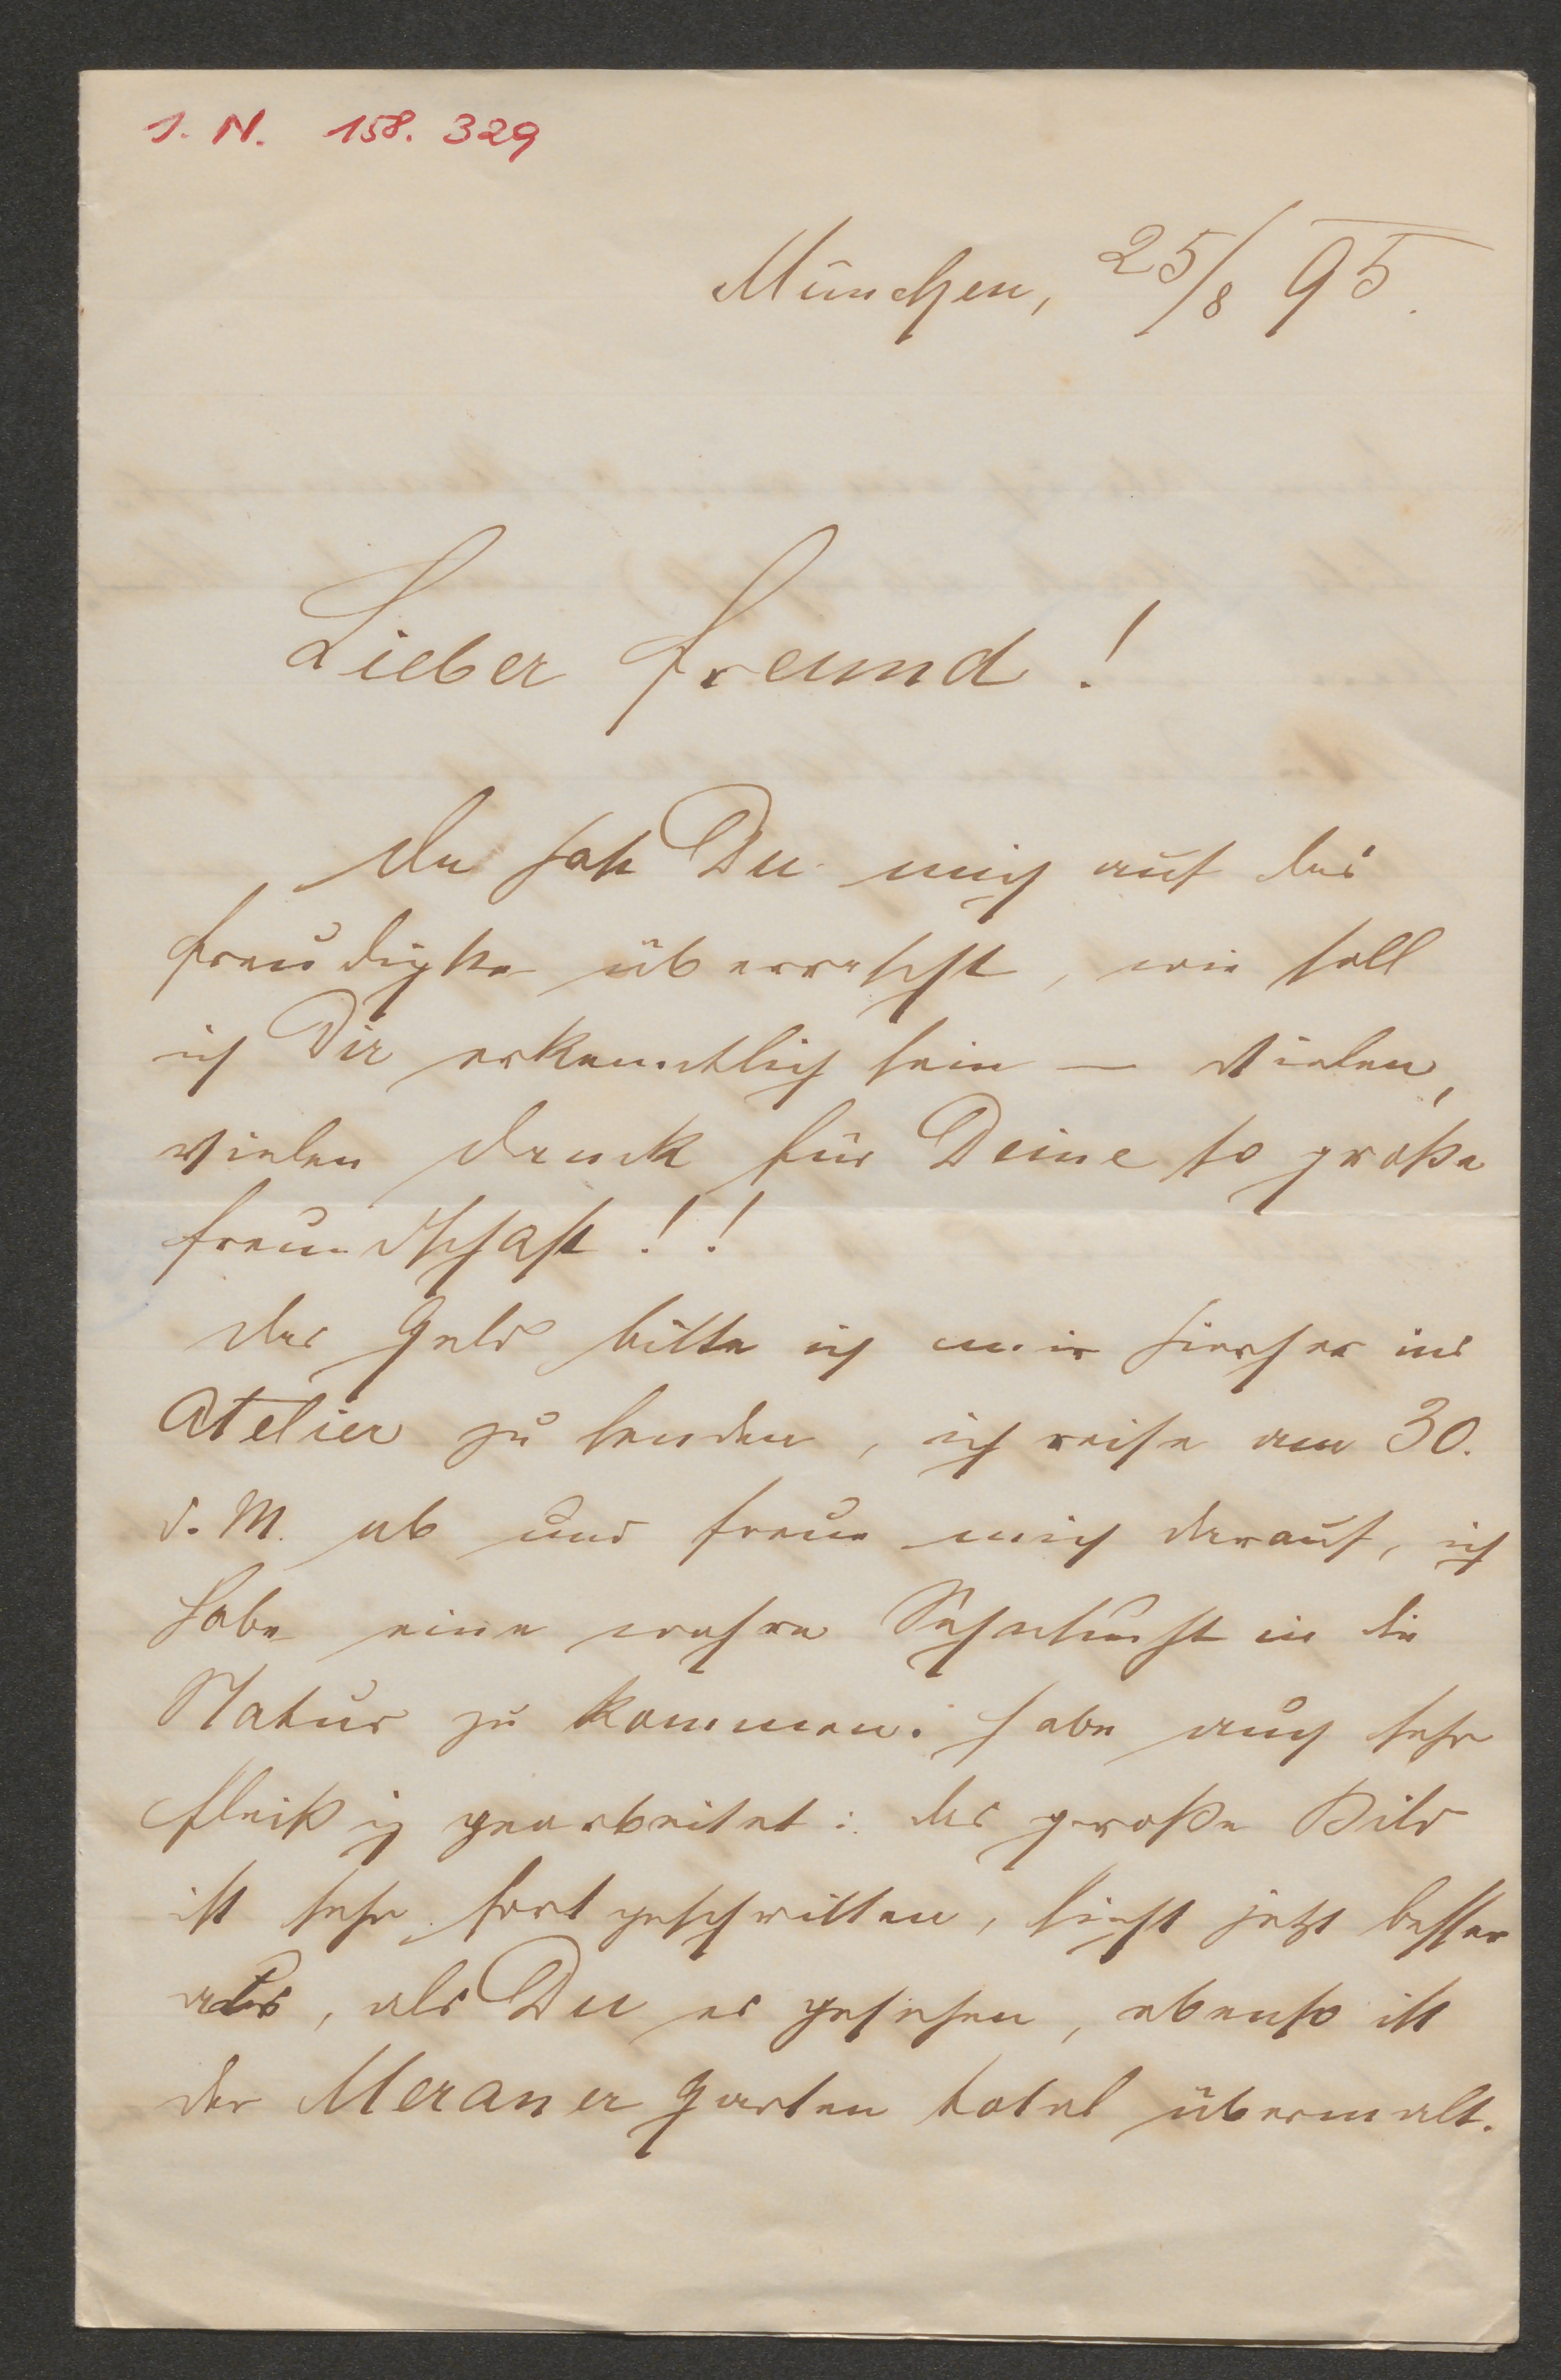 J. N. 158. 329
München, 25/8 95.
Lieber Freund!
Da hast Du mich auf das
freudigste überrascht, wie soll
ich Dir erkenntlich sein — vielen,
vielen Dank für Deine so große
Freundschaft!!
Das Geld bitte ich mir hierher ins
Atelier zu senden, ich reise am 30.
d. M. ab und freue mich darauf, ich
habe eine wahre Sehnsucht in die
Natur zu kommen. Habe auch sehr
fleißig gearbeitet: das große Bild
ist sehr fortgeschritten, sieht jetzt besser
aus, als Du es gesehen, ebenso ist
der Meraner Garten total übermalt.